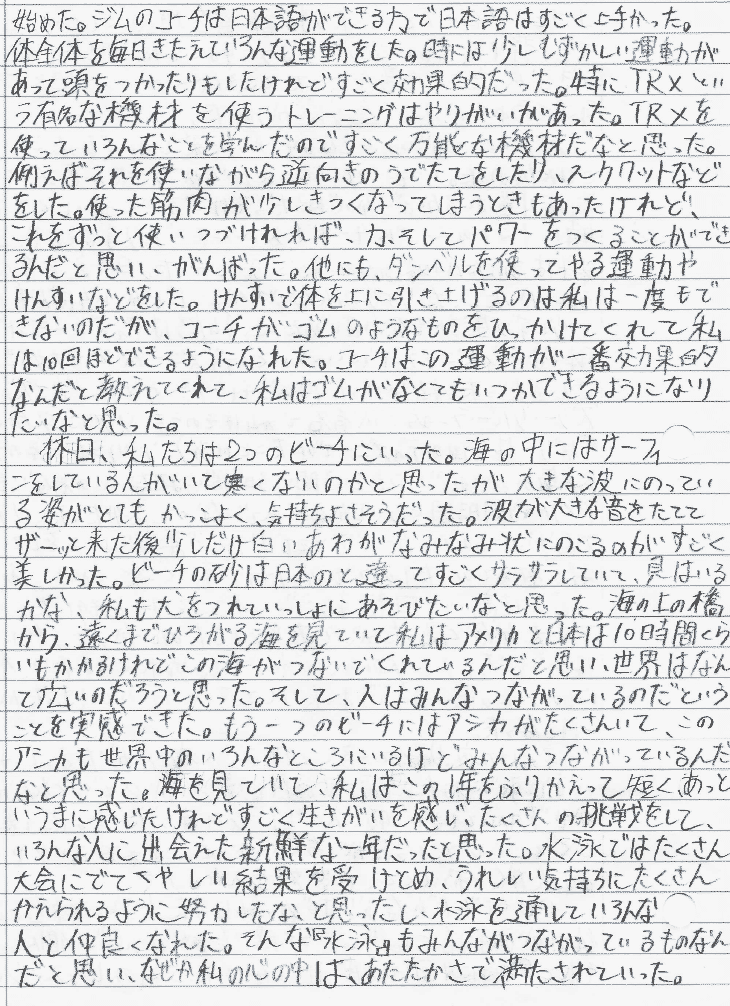 始めた。ジムのコーチは日本語ができる方で日本語はすごく上手かった。
体全体を毎日きたえていろんな運動をした。時には少しむずかしい運動が
あって頭をつかったりもしたけれどすごく効果的だった。特にTRXとい
う有名な機材を使うトレーニングはやりがいがあった。TRXを
使っていろんなことを学んだのですごく万能な機材だなと思った。
例えばそれを使いながら逆向きのうでたてをしたり、スクワットなど
をした。使った筋肉が少しきつくなってしまうときもあったけれど、
これをずっと使いつづけれれば、力、そしてパワーをつくることができ
るんだと思い、がんばった。他にも、ダンベルを使ってやる運動や
けんすいなどをした。けんすいで体を上に引き上げるのは私は一度もで
きないのだが、コーチがゴムのようなものをひっかけてくれて私
は10回ほどできるようになれた。コーチはこの運動が一番効果的
なんだと教えてくれて、私はゴムがなくてもいつかできるようになり
たいなと思った。
休日、私たちは2つのビーチにいった。海の中にはサーフィ
ンをしているんがいて寒くないのかと思ったが大きな波にのってい
る姿がとてもかっこよく、気持ちよさそうだった。波が大きな音をたてて
ザーッと来た後少しだけ白いあわがなみなみ状にのこるのがすごく
美しかった。ビーチの砂は日本のと違ってすごくサラサラしていて、貝はいる
かな、私も犬をつれていっしょにあそびたいなと思った。海の上の橋
から、遠くまでひろがる海を見ていて私はアメリカと日本は10時間くら
いもかかるけれどこの海がつないでくれているんだと思い、世界はなん
て広いのだろうと思った。そして、人はみんなつながっているのだという
ことを実感できた。もう一つのビーチにはアシカがたくさんいて、この
アシカも世界中のいろんなところにいるけどみんなつながっているんだ
なと思った。海を見ていて、私はこの1年をふりかえって短く、あっと
いうまに感じたけれどすごく生きがいを感じ、たくさんの挑戦をして、
いろんな人に出会えた新鮮な一年だったと思った。水泳ではたくさん
大会にでてくやしい結果を受けとめ、うれしい気持ちにたくさん
かえられるように努力したな、と思ったし、水泳を通していろんな
人と仲良くなれた。そんな『水泳』もみんながつながっているものなん
だと思い、なぜか私の心の中は、あたたかさで満たされていった。